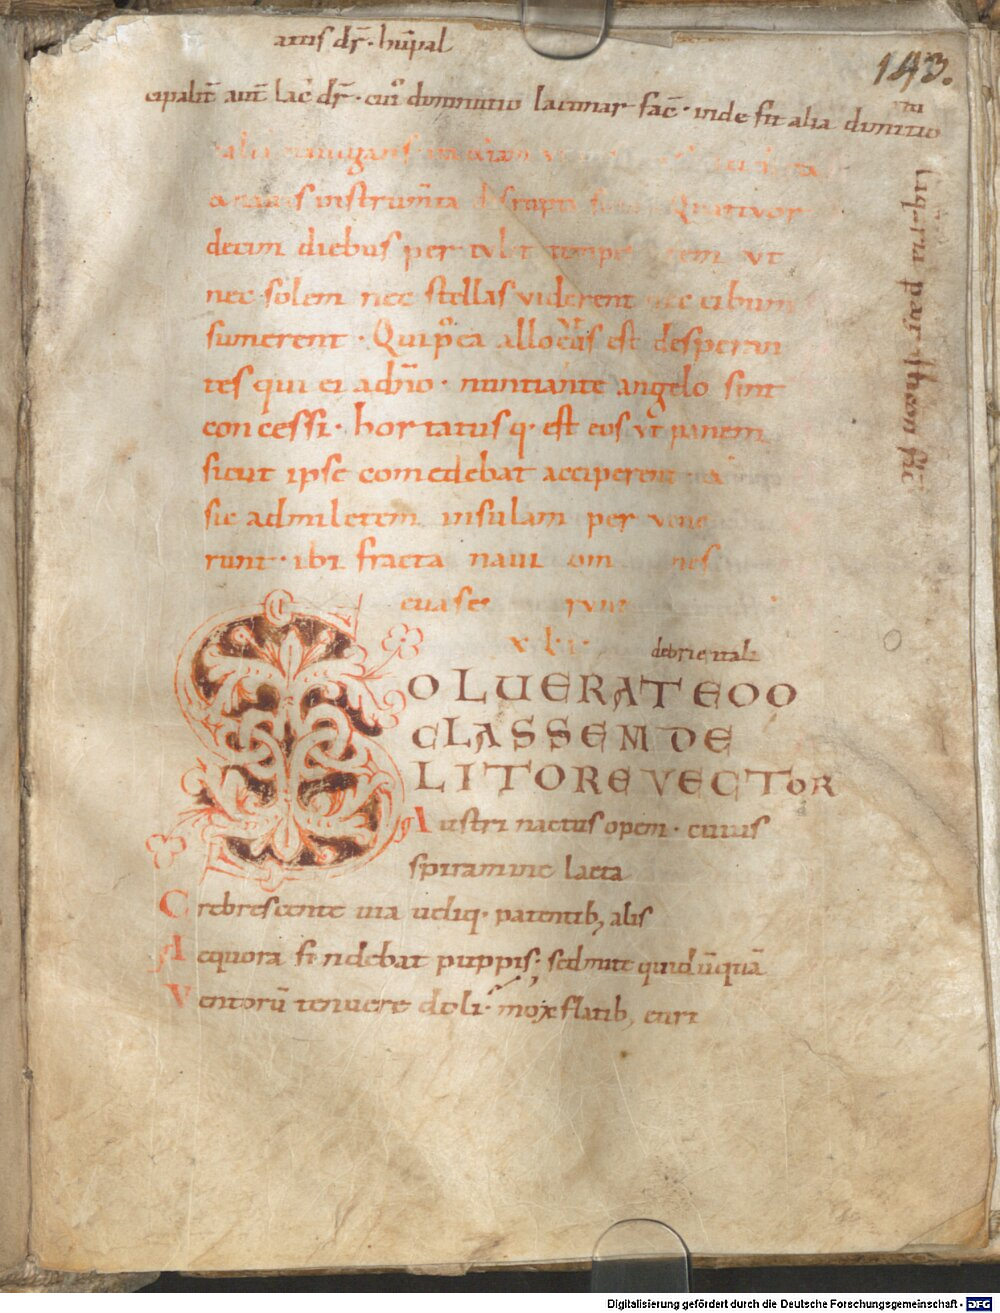 atus dr̄. humpal
cipalit̄ aut̄ lac̄ dr̄. cui' diminutio lacunar fac̄. inde fit alia diminutio
143.
liq. ru par then sic
nauis instrum̄ta disrupta Quattuor
decim diebus per tulit tempe rem ut
nec solem nec stellas viderent nec cibum
sumerent. Qui p̄ea allocut̄s est desperan
tes qui ei adn̄o. nuntiante angelo sint
concessi. hortatus q. est eos ut panem
sicut ipse comedebat acciperent
sic ad miletem insulam per vene
runt. ibi fracta naui om nes
euase rvnt
x l i
de brie
OLUERAT EOO
CLASSEM DE
LITORE VECTOR
Austri nactus opem. cuius
spiramine laeta
Crebrescente uia ueliq. patentib; alis
Aequora findebat puppis; sed mite quid ūquā
Ventorū tenuere doli. mox flatib; euri
Digitalisierung gefördert durch die Deutsche Forschungsgemeinschaft - DFG